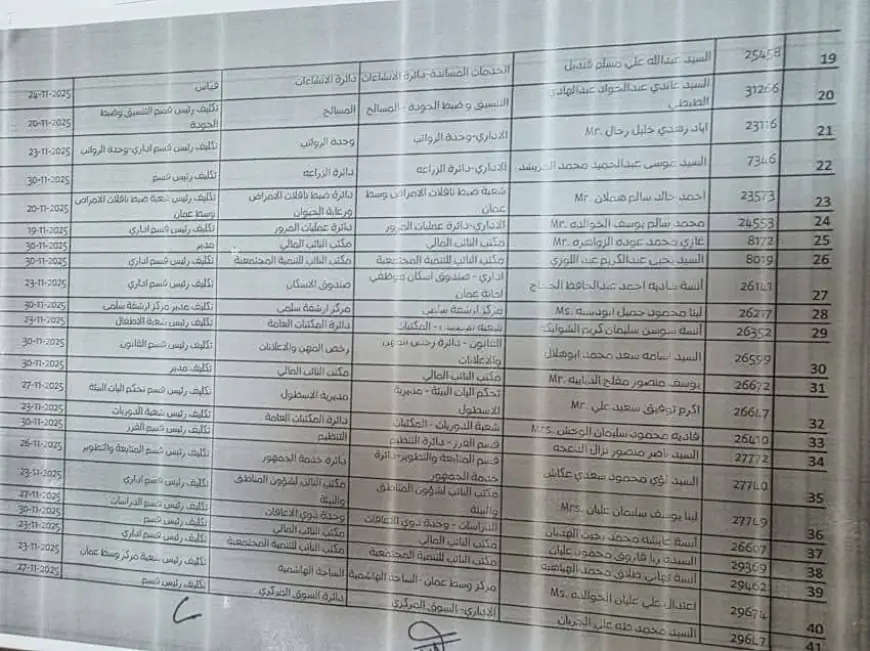 19 25458 السيد عبدالله علي مسلم قنديل الخدمات المساندة-دائرة الانشاءات دائرة الانشاءات 24-11-2025
20 31266 السيد عبدالجواد عبدالهادي التنسيق و ضبط الجودة - المسالخ المسالخ تكليف رئيس قسم التنسيق وضبط الجودة 20-11-2025
21 23116 اياد زهدي خليل رحال Mr. الاداري-وحدة الرواتب وحدة الرواتب تكليف رئيس قسم اداري-وحدة الرواتب 23-11-2025
22 7346 السيد موسى عبدالحميد محمد الاداري-دائرة الزراعه دائرة الزراعه تكليف رئيس قسم 30-11-2025
23 23573 احمد خالد سالم هملان Mr. شعبة ضبط ناقلات الامراض وسط عمان دائرة ضبط ناقلات الامراض ورعاية الحيوان تكليف رئيس شعبة ضبط ناقلات الامراض وسط عمان 20-11-2025
24 24553 محمد سالم يوسف الخوالده Mr. الاداري-دائرة عمليات المرور دائرة عمليات المرور تكليف رئيس قسم اداري 19-11-2025
25 8172 غازي محمد عوده الزواهره Mr. مكتب النائب المالي مكتب النائب المالي مدير 30-11-2025
26 8019 السيد يحيى عبدالكريم عبد اللوزي مكتب النائب للتنمية المجتمعية مكتب النائب للتنمية المجتمعية تكليف رئيس قسم 30-11-2025
27 26141 آنسة شاديه احمد عبدالحافظ الحجاج اداري - صندوق اسكان موظفي امانة عمان صندوق الاسكان تكليف رئيس قسم اداري 23-11-2025
28 26217 لينا محمود جميل ابودسيه Ms. مركز ارشفة سلمى مركز ارشفة سلمى تكليف مدير مركز ارشفة سلمى 30-11-2025
29 26352 آنسة سوسن سليمان كريم الشوابكه شعبة المكتبات دائرة المكتبات العامة تكليف رئيس شعبة الاطفال 23-11-2025
30 26559 السيد اسامه سعد محمد ابوهلال القانون - دائرة رخص المهن والاعلانات رخص المهن والاعلانات تكليف رئيس قسم القانون 30-11-2025
31 26672 يوسف منصور مفلح الدبايبه Mr. مكتب النائب المالي مكتب النائب المالي تكليف مدير 30-11-2025
32 26647 اكرم توفيق سعيد علي Mr. تحكم اليات البيئة - مديرية الاسطول مديرية الاسطول تكليف رئيس قسم تحكم اليات البيئة 27-11-2025
33 26410 فاديه محمود سليمان الوحش Mrs. شعبة الدوريات - المكتبات دائرة المكتبات العامة تكليف رئيس شعبة الدوريات 23-11-2025
34 27772 السيد ناصر منصور نزال الدعجه قسم الفرز - دائرة التنظيم التنظيم تكليف رئيس قسم الفرز 30-11-2025
35 27740 السيد لؤي محمود سعدي عكاش قسم المتابعة والتطوير-دائرة خدمة الجمهور دائرة خدمة الجمهور تكليف رئيس قسم المتابعة والتطوير 26-11-2025
36 27749 لينا يوسف سليمان عليان Mrs. مكتب النائب لشؤون المناطق والبيئة مكتب النائب لشؤون المناطق والبيئة تكليف رئيس قسم اداري 23-11-2025
37 26607 آنسة عايشه محمد رجب الدراسات - وحدة ذوي الاعاقات وحدة ذوي الاعاقات تكليف رئيس قسم الدراسات 27-11-2025
38 29369 السيدة ربا فاروق محمود عليان مكتب النائب المالي مكتب النائب المالي تكليف رئيس قسم 30-11-2025
39 29462 آنسة تهاني محمد مكتب النائب للتنمية المجتمعية مكتب النائب للتنمية المجتمعية تكليف رئيس قسم اداري 23-11-2025
40 29674 اعتدال علي عليان الخوالده Ms. مركز وسط عمان - الساحة الهاشمية الساحة الهاشمية تكليف رئيس شعبة مركز وسط عمان 23-11-2025
41 29647 السيد محمد طه علي الاداري - السوق المركزي دائرة السوق المركزي تكليف رئيس قسم 27-11-2025